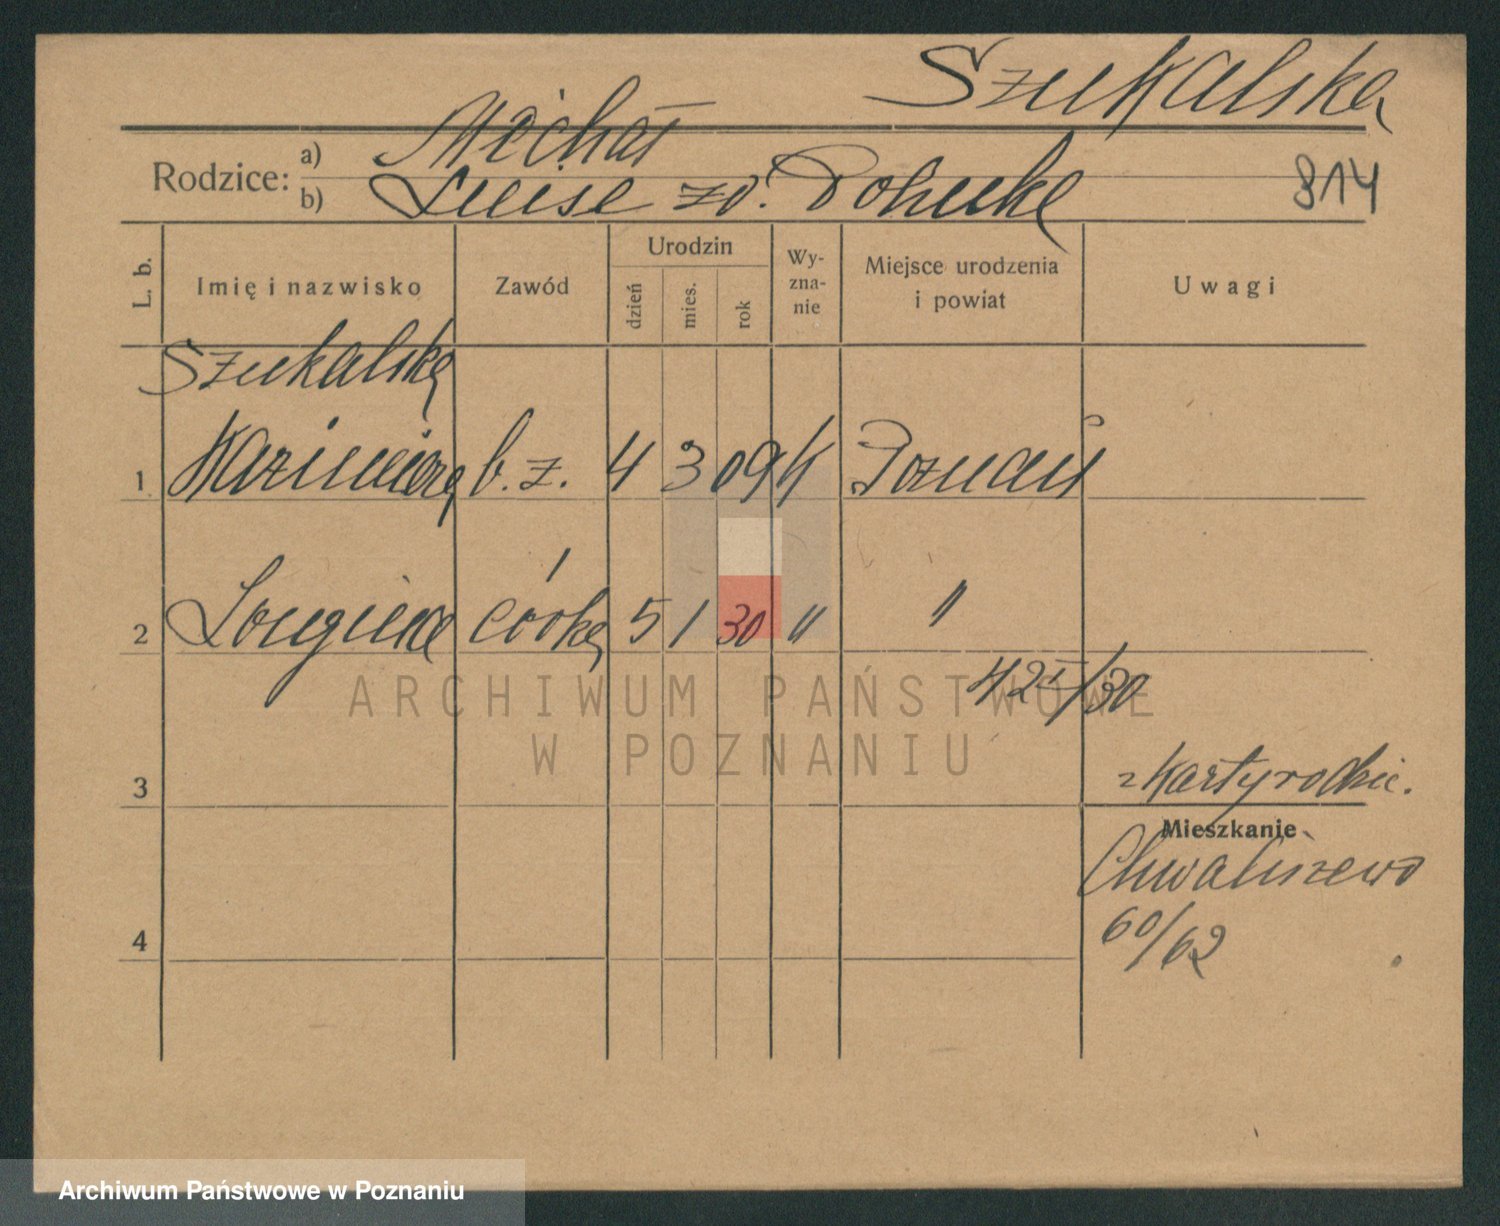 Szukalska
Rodzice: a) Michał
b) Luise zd. Pohucke
814
L. b.
Imię i nazwisko
Zawód
Urodzin
dzień
mies.
rok
Wy-
zna-
nie
Miejsce urodzenia
i powiat
Uwagi
Szukalska
1 Kazimiera b. z. 4 3 09 k Poznań
2 córka 5 1 30 " "
42 I/30
3
z karty rodzic.
Mieszkanie
Chwaliszewo
60/62
4
ARCHIWUM PAŃSTWOWE
W POZNANIU
Archiwum Państwowe w Poznaniu